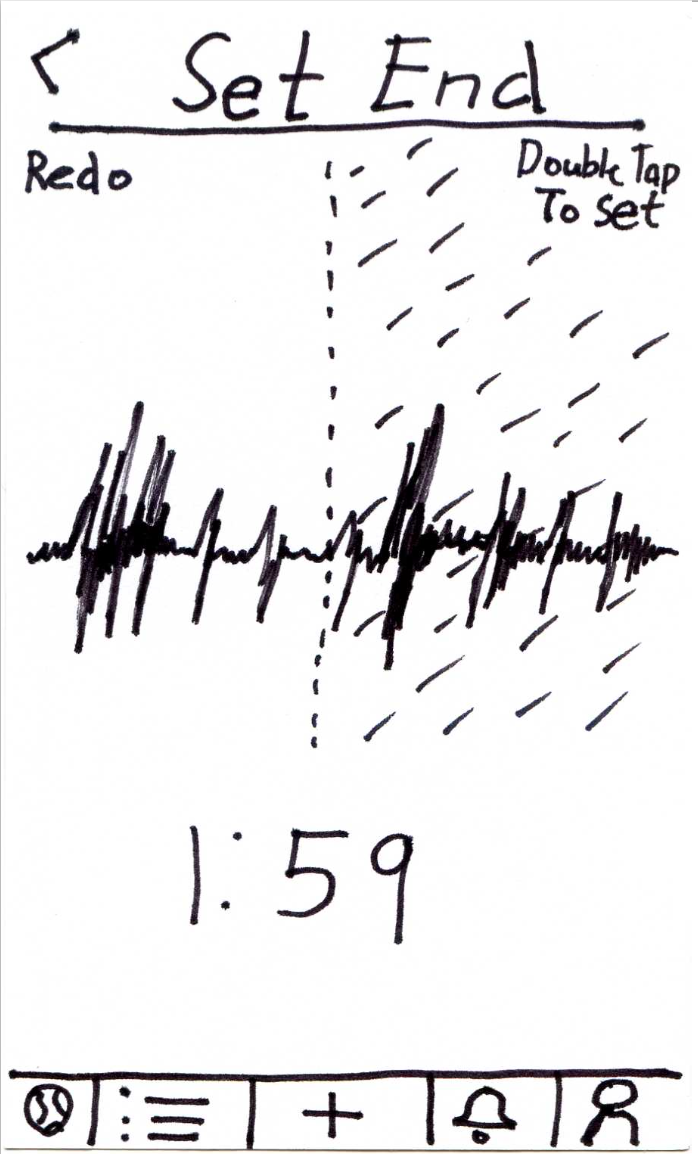 < Set End
Redo
Double Tap
To set
1:59
+